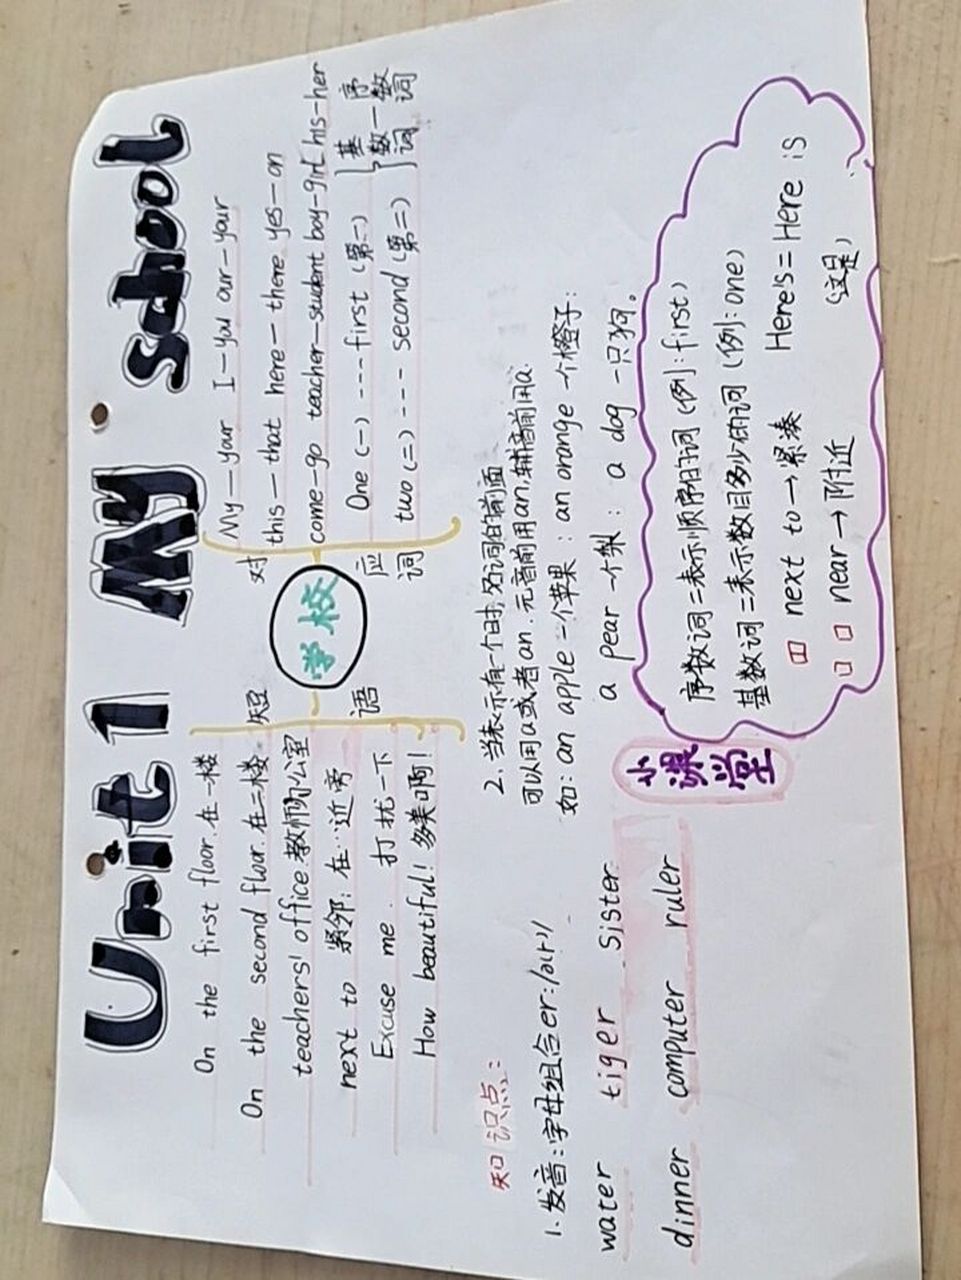 Unit 1 My school
On the first floor.在一楼
On the second floor.在二楼
teachers' office 教师办公室
next to 紧邻;在…近旁
Excuse me. 打扰一下
How beautiful! 多美啊!
短
语
学校
对
应
词
My—your I—you our—your
this—that here—there yes—on
come-go teacher—student boy-girl his-her
One(一)----first(第一)
two(二)---- second(第二)
基数词—序数词
知识点:
1.发音:字母组合er:
water tiger sister
dinner computer ruler
2.当表示有一个时,名词的前面
可以用a或者an.元音前用an,辅音前用a.
如:an apple 一个苹果: an orange 一个橙子:
a pear 一个梨: a dog 一只狗。
小课堂
序数词=表示顺序的词(例:first)
基数词=表示数目多少的词(例:one)
next to→紧凑 Here's=Here is
near→附近 (这是)